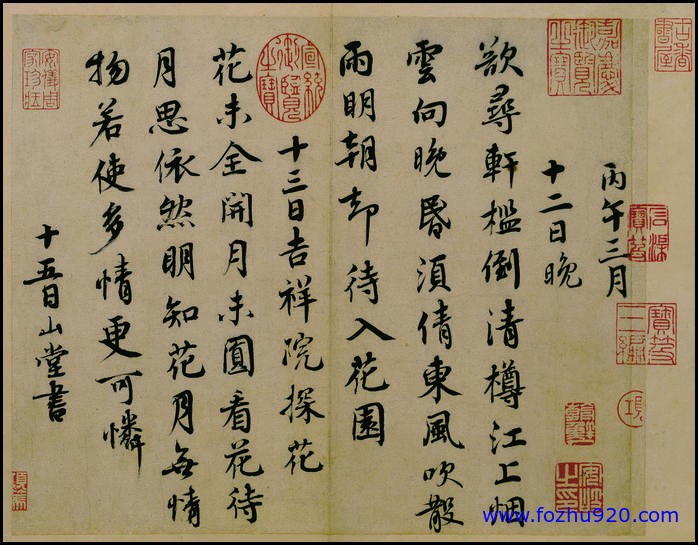 丙午三月
十二日晚
欲尋軒檻倒清樽江上烟
雲向晚昬須倩東風吹散
雨明朝却待入花園
十三日吉祥院探花
花未全開月未圓看花待
月思依然明知花月無情
物若使多情更可憐
十五日山堂書
嘉慶御覽之寶
宣統御覽之寶
www.fozhu920.com